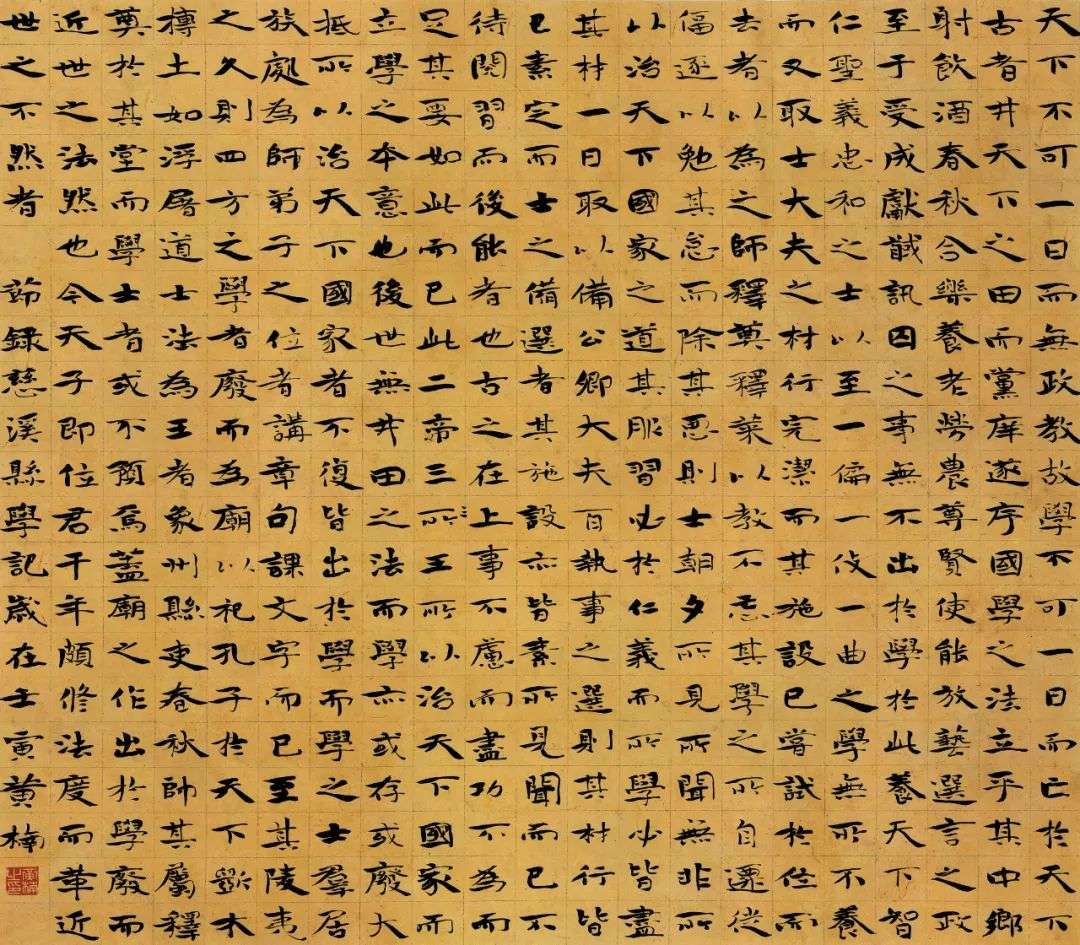 天下不可一日而無政教故學不可一日而亡於天下
古者井天下之田而黨庠遂序國學之法立乎其中鄉
射飲酒春秋合樂養老勞農尊賢使能放藝選言之政
至于受成獻馘訊囚之事無不出於學於此養天下智
仁聖義忠和之士以至一偏一伎一曲之學無所不養
而又取士大夫之材行完潔而其施設已嘗試於位而
去者以為之師釋奠釋菜以教不忘其學之所自遷徙
偪逐以勉其怠而除其惡則士朝夕所見所聞無非所
以治天下國家之道其服習必於仁義而所學必皆盡
其材一日取以備公卿大夫百執事之選則其材行皆
已素定而士之備選者其施設亦皆素所見聞而已不
待閱習而後能者也古之在上事不慮而盡功不為而
足其要如此而已此二帝三所王所以治天下國家而
立學之本意也後世無井田之法而學亦或存或廢大
抵所以治天下國家者不復皆出於學而學之士羣居
族處為師弟子之位者講章句課文字而已至其陵夷
之久則四方之學者廢而為廟以祀孔子於天下斲木
摶土如浮屠道士法為王者象州縣吏春秋帥其屬釋
奠於其堂而學士者或不預焉蓋廟之作出於學廢而
近世之法然也今天子即位君干年頗修法度而革近
世之不然者 節錄慈溪縣學記歲在壬寅黃楠